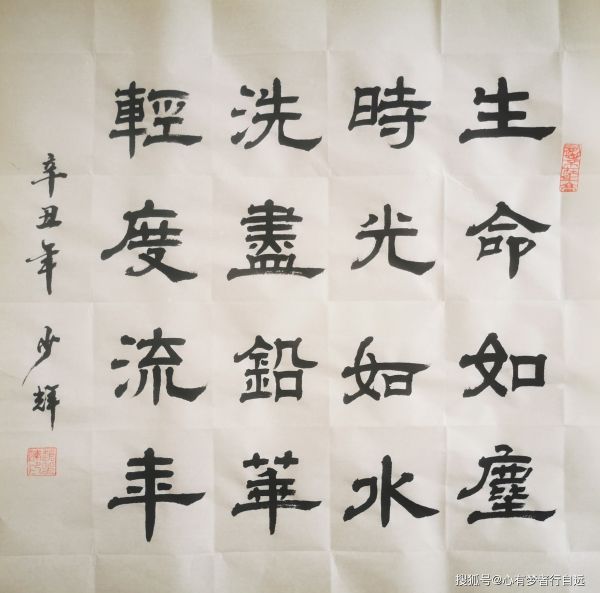 生命如塵
時光如水
洗盡鉛華
輕度流年
辛丑年 少輝
搜狐号@心有梦者行自远